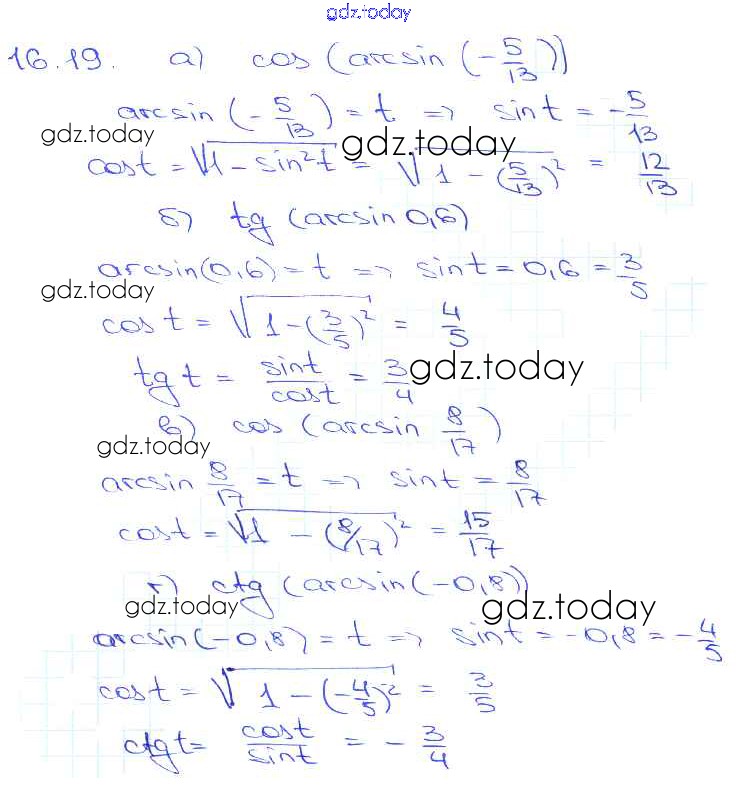 gdz.today
16.19. а) cos (arcsin (-5/13))
arcsin (-5/13) = t => sint = -5/13
gdz.today
cost = √1 - sin²t = √1 - (5/13)² = 12/13
gdz.today
б) tg (arcsin 0,6)
arcsin(0,6) = t => sint = 0,6 = 3/5
gdz.today
cost = √1-(3/5)² = 4/5
tg t = sint/cost = 3/4
gdz.today
в) cos (arcsin 8/17)
gdz.today
arcsin 8/17 = t => sint = 8/17
cost = √1 - (8/17)² = 15/17
г) ctg (arcsin(-0,8))
gdz.today
gdz.today
arcsin(-0,8) = t => sint = -0,8 = -4/5
cost = √1 - (-4/5)² = 3/5
ctgt = cost/sint = - 3/4